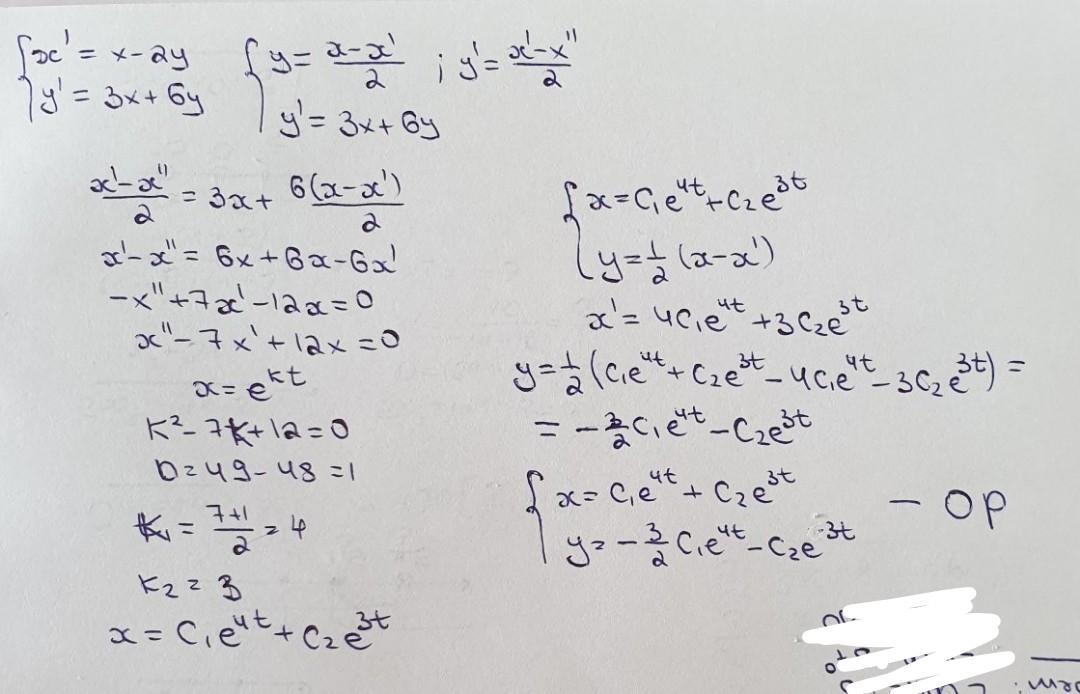 { x' = x - 2y
y' = 3x + 6y
{ y = (x - x')/2 ; y' = (x' - x'')/2
y' = 3x + 6y
(x' - x'')/2 = 3x + 6(x - x')/2
x' - x'' = 6x + 6x - 6x'
-x'' + 7x' - 12x = 0
x'' - 7x' + 12x = 0
x = e^{kt}
K² - 7K + 12 = 0
D = 49 - 48 = 1
K₁ = (7+1)/2 = 4
K₂ = 3
x = C₁e^{4t} + C₂e^{3t}
{ x = C₁e^{4t} + C₂e^{3t}
y = 1/2 (x - x')
x' = 4C₁e^{4t} + 3C₂e^{3t}
y = 1/2 (C₁e^{4t} + C₂e^{3t} - 4C₁e^{4t} - 3C₂e^{3t}) =
= -3/2 C₁e^{4t} - C₂e^{3t}
{ x = C₁e^{4t} + C₂e^{3t} - OP
y = -3/2 C₁e^{4t} - C₂e^{-3t}